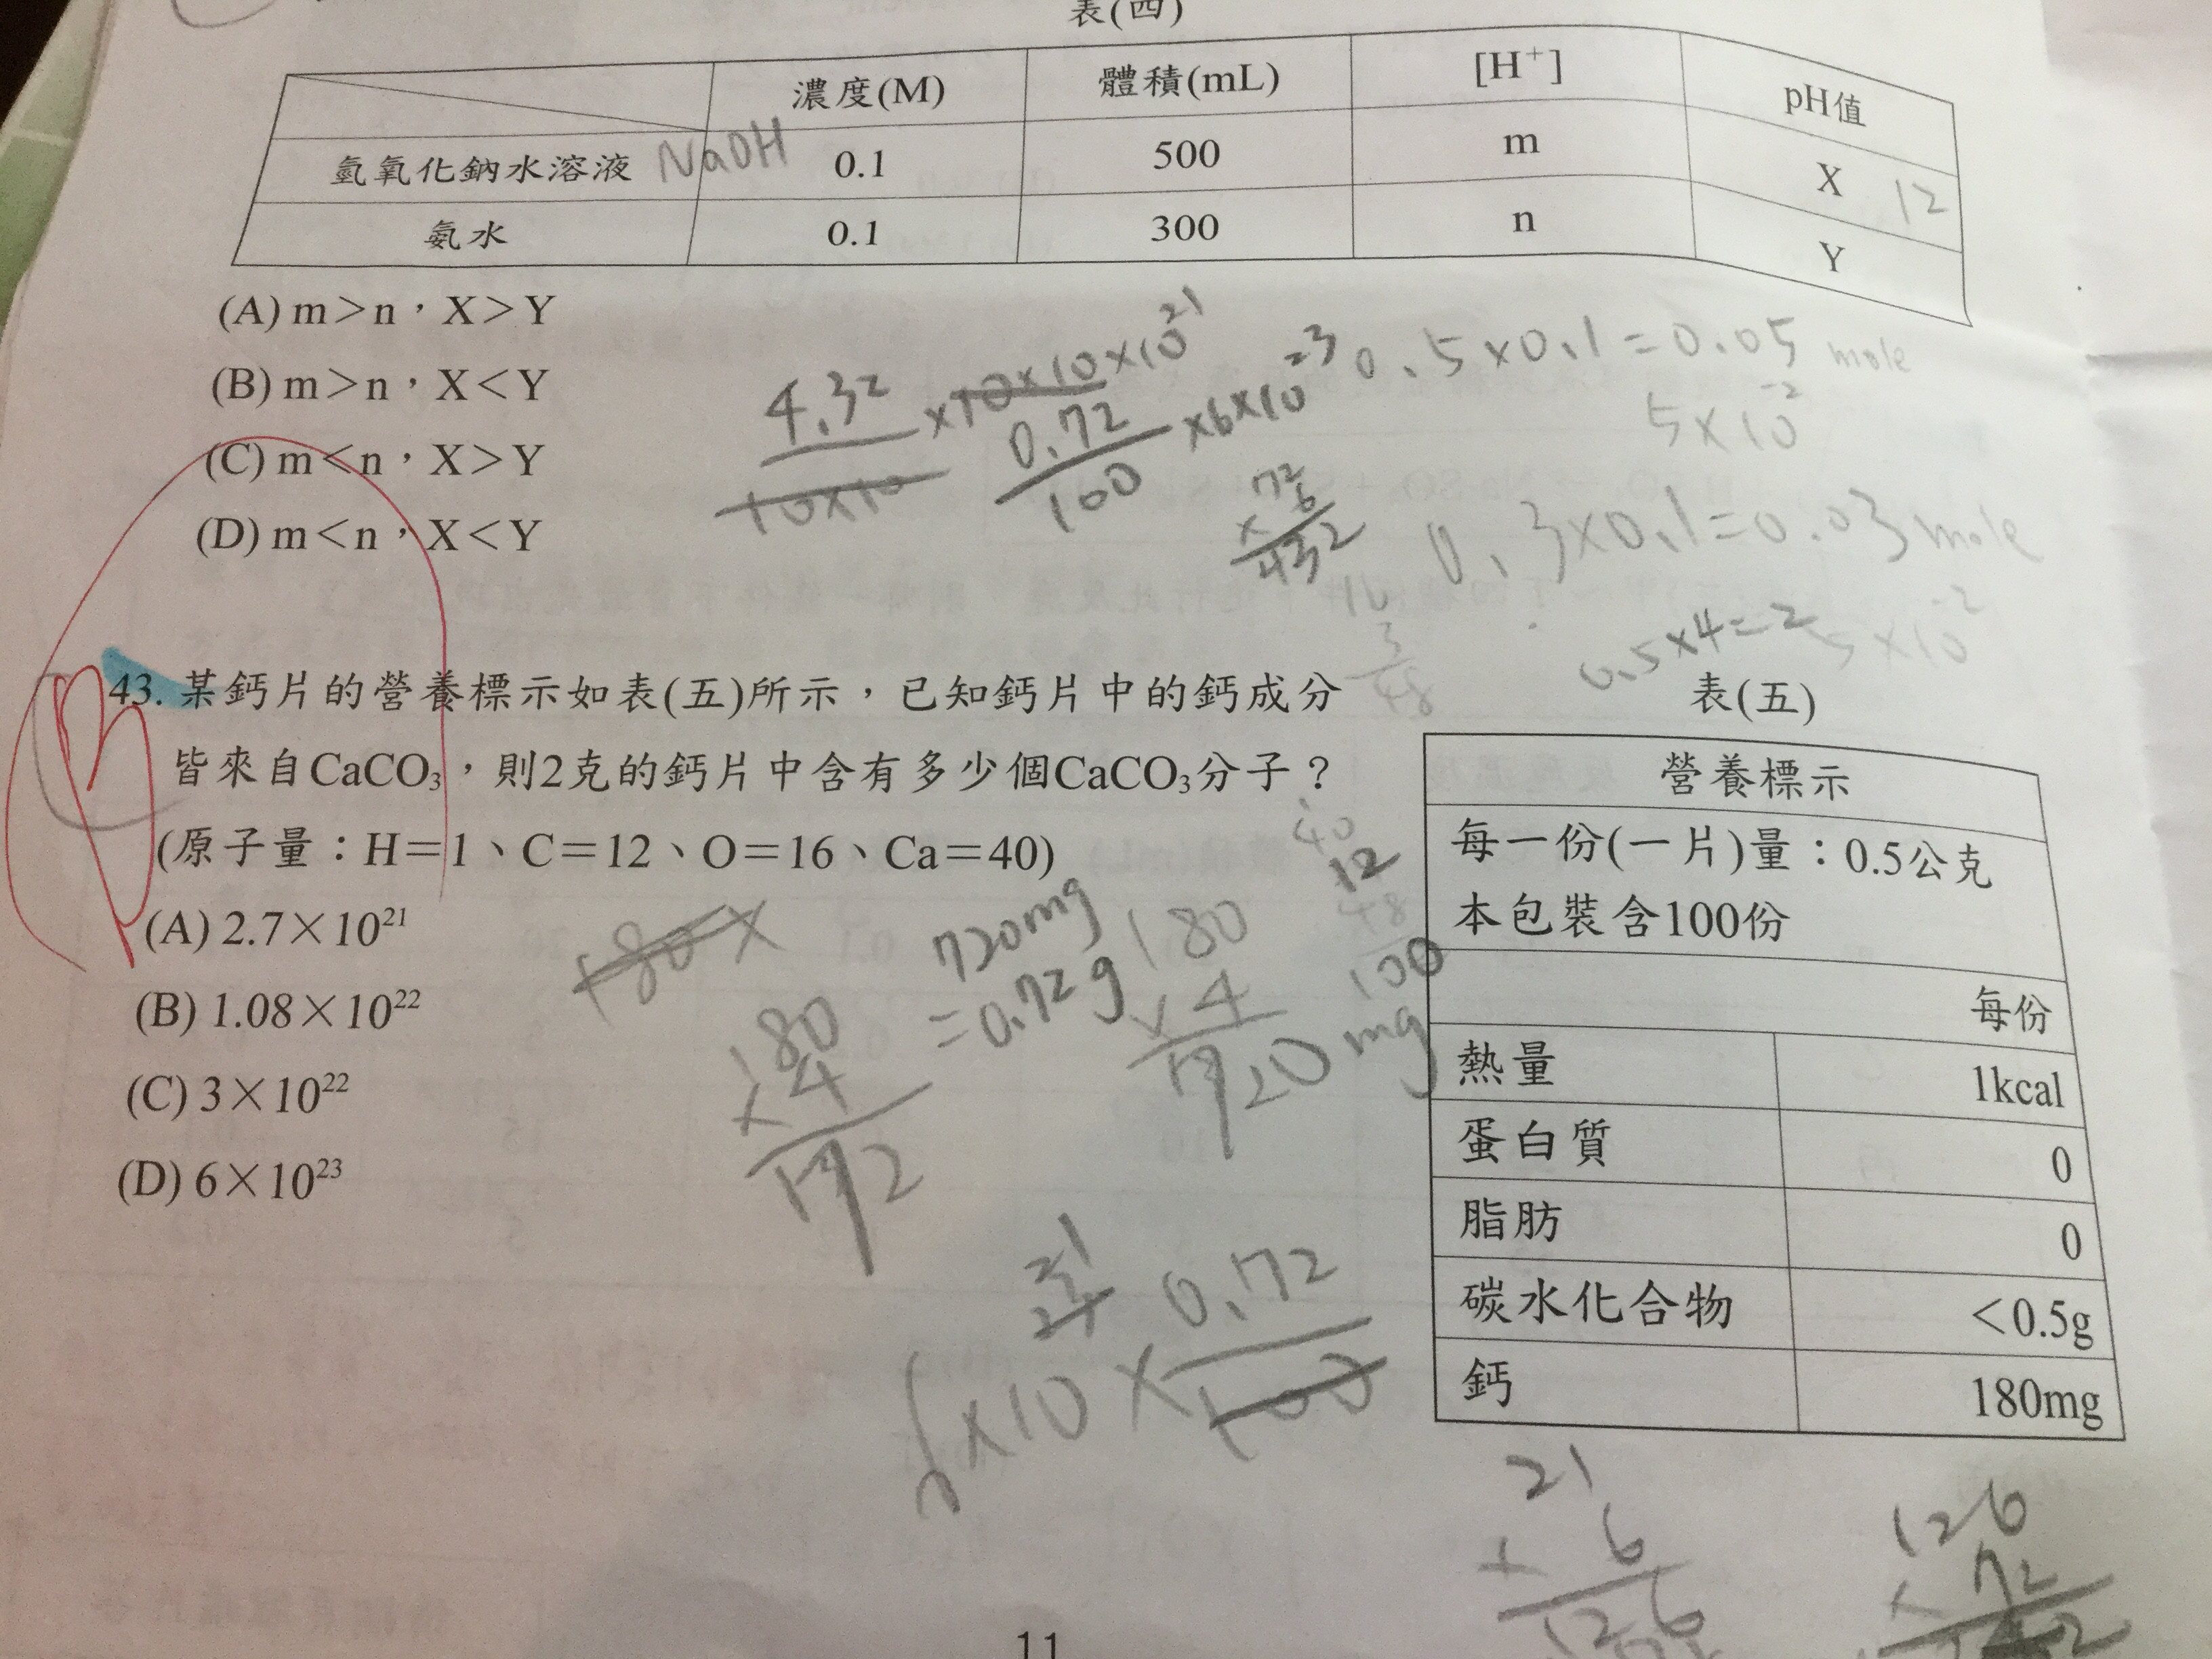 表(四)
濃度(M) 體積(mL) [H⁺] pH值
氫氧化鈉水溶液 NaOH 0.1 500 m X 12
氨水 0.1 300 n Y
(A) m>n，X>Y
(B) m>n，X<Y
(C) m<n，X>Y
(D) m<n，X<Y
4.32
10×10
×10×10×10²¹
0.72
100
×6×10²³
72
×6
432
0.5×0.1=0.05 mole
5×10⁻²
0.3×0.1=0.03 mole
5×10⁻²
16
3
48
0.5×4=2
43. 某鈣片的營養標示如表(五)所示，已知鈣片中的鈣成分
皆來自CaCO₃，則2克的鈣片中含有多少個CaCO₃分子？
(原子量：H=1、C=12、O=16、Ca=40)
(A) 2.7×10²¹
(B) 1.08×10²²
(C) 3×10²²
(D) 6×10²³
180×
180
×4
720mg
=0.72g
180
×4
720 mg
40
12
48
100
21
6×10 × 0.72
100
表(五)
營養標示
每一份(一片)量：0.5公克
本包裝含100份
每份
熱量 1kcal
蛋白質 0
脂肪 0
碳水化合物 <0.5g
鈣 180mg
21
× 6
126
126
× 72
11